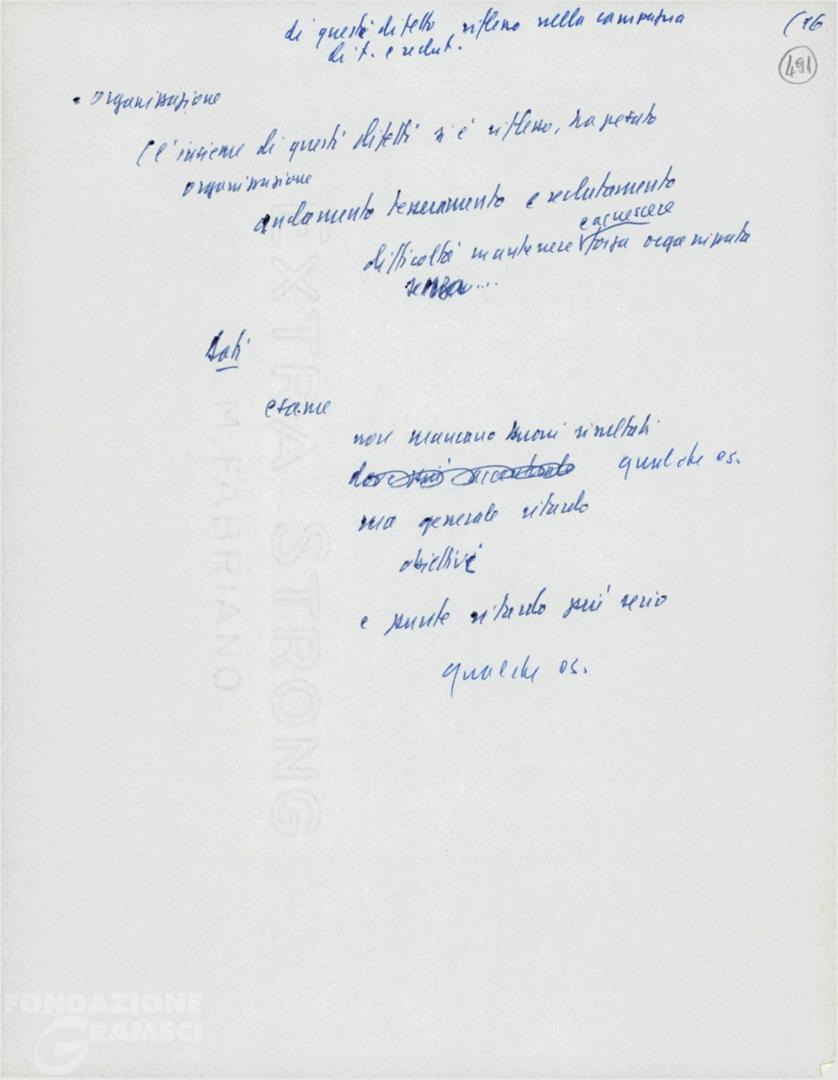 di questi difetti riflesso nella campagna
di t. e reclut.
(76
491
• organizzazione
(l'insieme di questi difetti si è riflesso, ha pesato
organizzazione
andamento tesseramento e reclutamento
e accrescere
difficoltà mantenere forza organizzata
senza...
Dati
esame
non mancano buoni risultati
qualche es.
ma generale ritardo
obiettivi
e punte ritardo più serio
qualche es.
EXTRA STRONG
M FABRIANO
FONDAZIONE
GRAMSCI